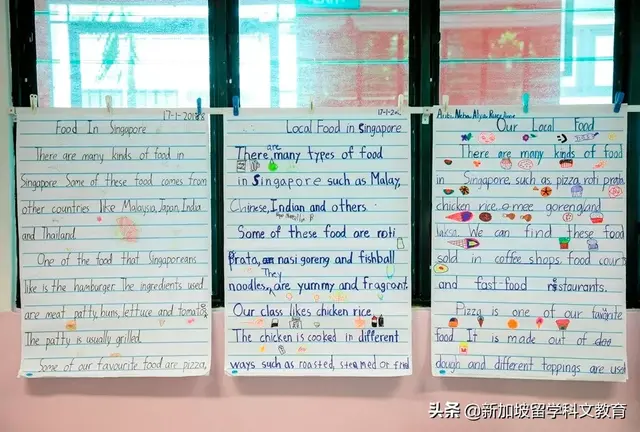 17-1-2018
Food In Singapore
There are many kinds of food in
Singapore. Some of these food comes from
other countries like Malaysia, Japan, India
and Thailand.
One of the food that Singaporeans
like is the hamburger. The ingredients used
are meat patty, buns, lettuce and tomatoes.
The patty is usually grilled.
Some of our favourite food are pizza,
17-1-20
Local Food in Singapore
There are many types of food
in Singapore such as Malay,
Chinese, Indian and others.
Some of these food are roti
prata, nasi goreng and fishball
noodles. They are yummy and fragrant.
Our class likes chicken rice.
The chicken is cooked in different
ways such as roasted, steamed or fried
Our Local Food
There are many kinds of food
in Singapore, such as pizza, roti prata,
chicken rice, mee goreng and
laksa. We can find these food
sold in coffee shops, food court
and fast-food restaurants.
Pizza is one of our favourite
food. It is made out of
dough and different toppings are used
头条 @新加坡留学科文教育